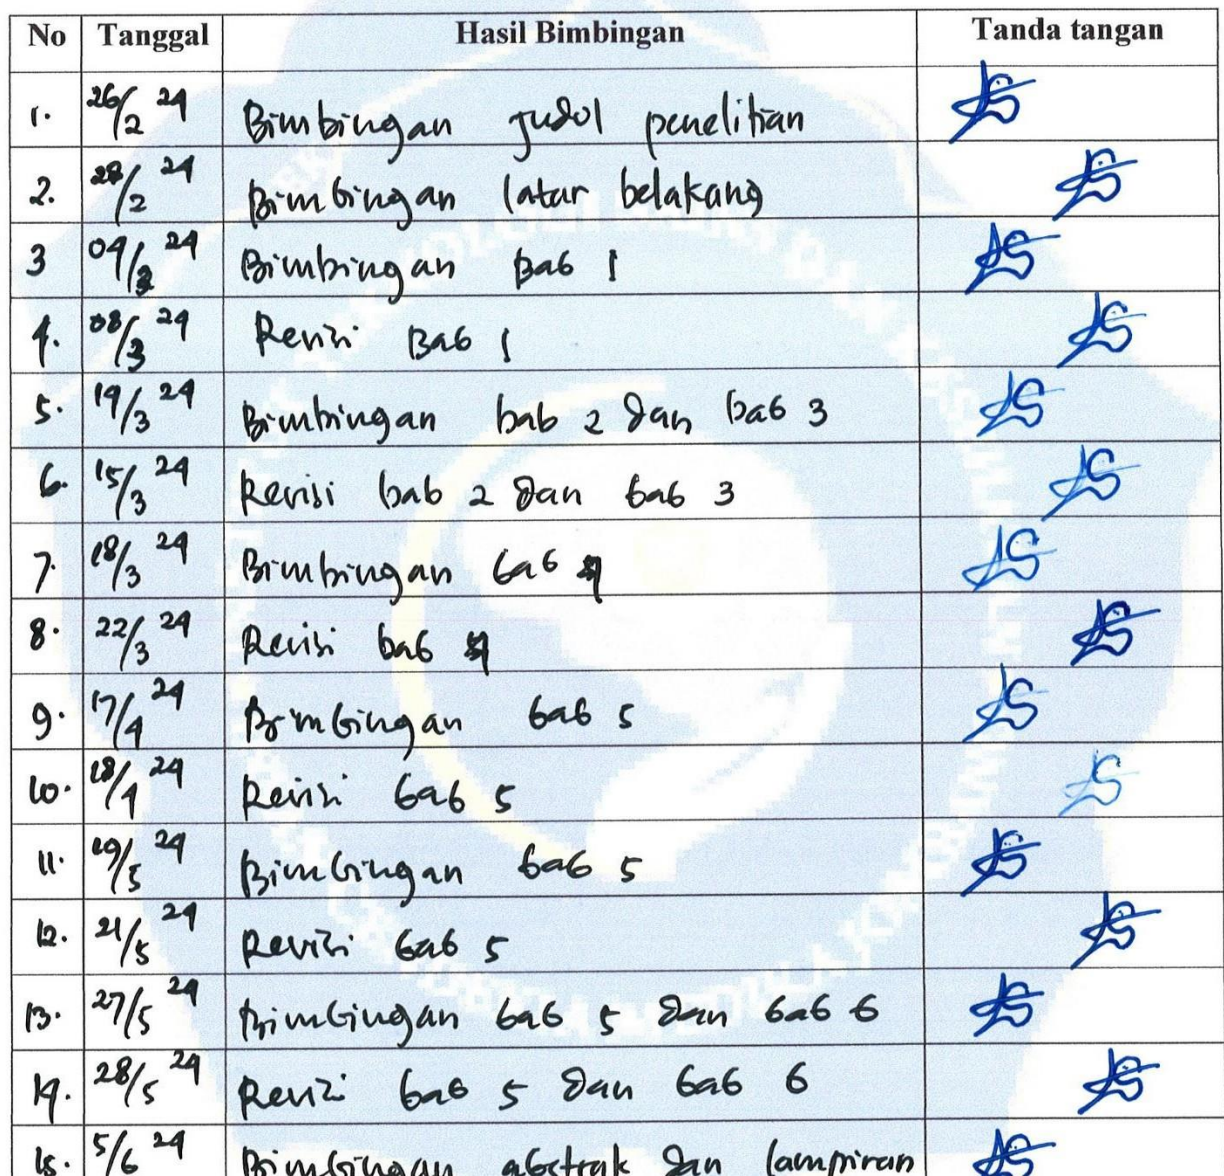 No Tanggal Hasil Bimbingan Tanda tangan
1. 26/2 24 Bimbingan judol penelitian
2. 28/2 24 Bimbingan latar belakang
3 04/3 24 Bimbingan Bab 1
4. 08/3 24 Revisi Bab 1
5. 14/3 24 Bimbingan bab 2 dan bab 3
6. 15/3 24 Revisi bab 2 dan bab 3
7. 18/3 24 Bimbingan bab 4
8. 22/3 24 Revisi bab 4
9. 17/4 24 Bimbingan bab 5
10. 18/4 24 Revisi bab 5
11. 19/5 24 Bimbingan bab 5
12. 21/5 24 Revisi bab 5
13. 27/5 24 Bimbingan bab 5 dan bab 6
14. 28/5 24 Revisi bab 5 dan bab 6
15. 5/6 24 Bimbingan abstrak dan lampiran